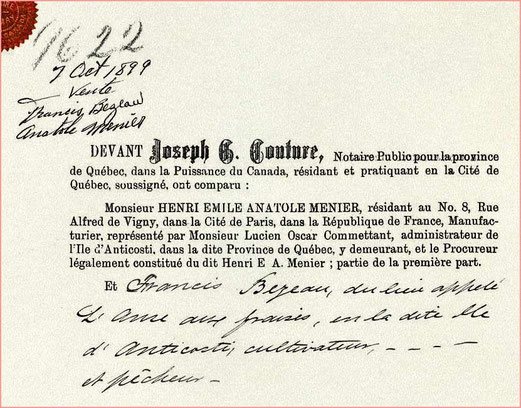 7622
7 Oct 1899
Vente
Francis Bezeau
Anatole Menier
DEVANT Joseph G. Couture, Notaire Public pour la province
de Québec, dans la Puissance du Canada, résidant et pratiquant en la Cité de
Québec, soussigné, ont comparu :
Monsieur HENRI EMILE ANATOLE MENIER, résidant au No. 8, Rue
Alfred de Vigny, dans la Cité de Paris, dans la République de France, Manufac-
turier, représenté par Monsieur Lucien Oscar Commettant, administrateur de
l'Ile d'Anticosti, dans la dite Province de Québec, y demeurant, et le Procureur
légalement constitué du dit Henri E A. Menier ; partie de la première part.
Et Francis Bezeau, du lieu appelé
L'Anse aux fraises, en la dite Ile
d'Anticosti, cultivateur, - - - -
et pêcheur -